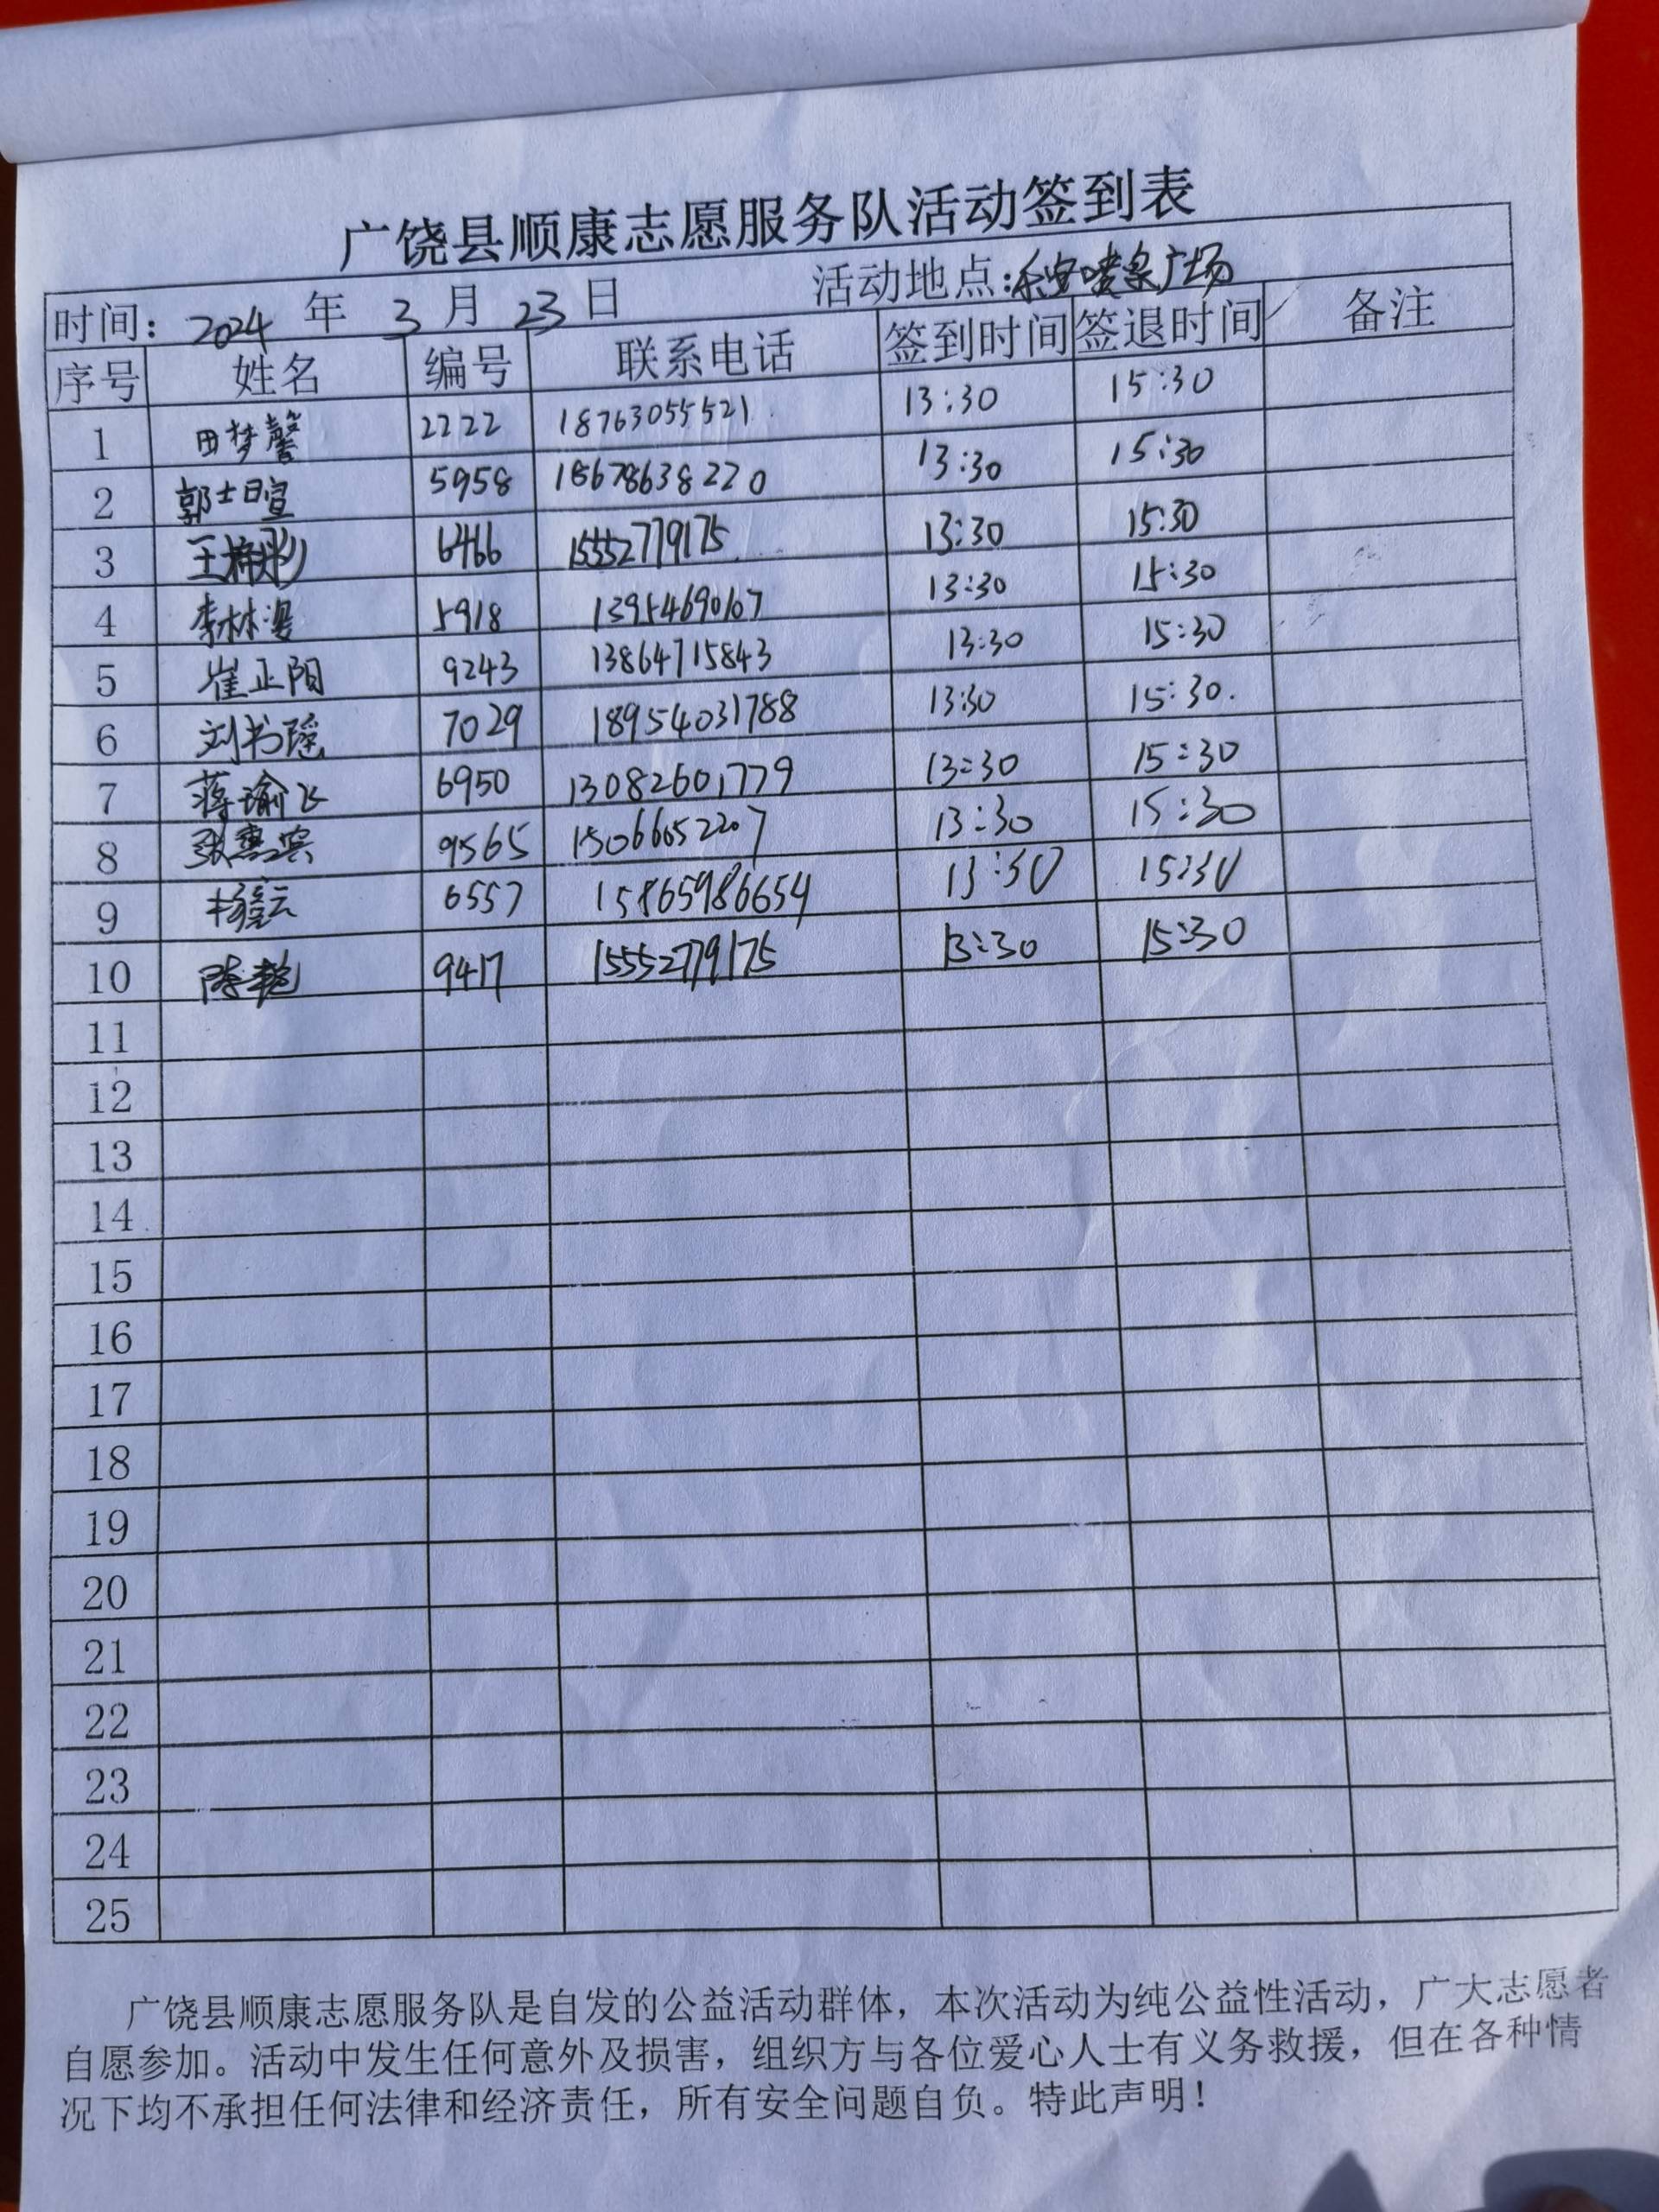 广饶县顺康志愿服务队活动签到表
时间: 2024 年 3 月 23 日 活动地点:乐安喷泉广场
序号 姓名 编号 联系电话 签到时间 签退时间 备注
1 田梦馨 2222 18763055521 13:30 15:30
2 郭士暄 5958 18678638220 13:30 15:30
3 王梓彤 6466 15552779175 13:30 15:30
4 李林 5918 13954690107 13:30 15:30
5 崔正阳 9243 13864715843 13:30 15:30
6 刘书瑶 7029 18954031788 13:30 15:30.
7 蒋瑜飞 6950 13082601779 13:30 15:30
8 张惠宾 9565 15066052207 13:30 15:30
9 6557 15865986654 13:30 15:30
10 陈艳 9417 15552779175 13:30 15:30
11
12
13
14
15
16
17
18
19
20
21
22
23
24
25
广饶县顺康志愿服务队是自发的公益活动群体，本次活动为纯公益性活动，广大志愿者
自愿参加。活动中发生任何意外及损害，组织方与各位爱心人士有义务救援，但在各种情
况下均不承担任何法律和经济责任，所有安全问题自负。特此声明！